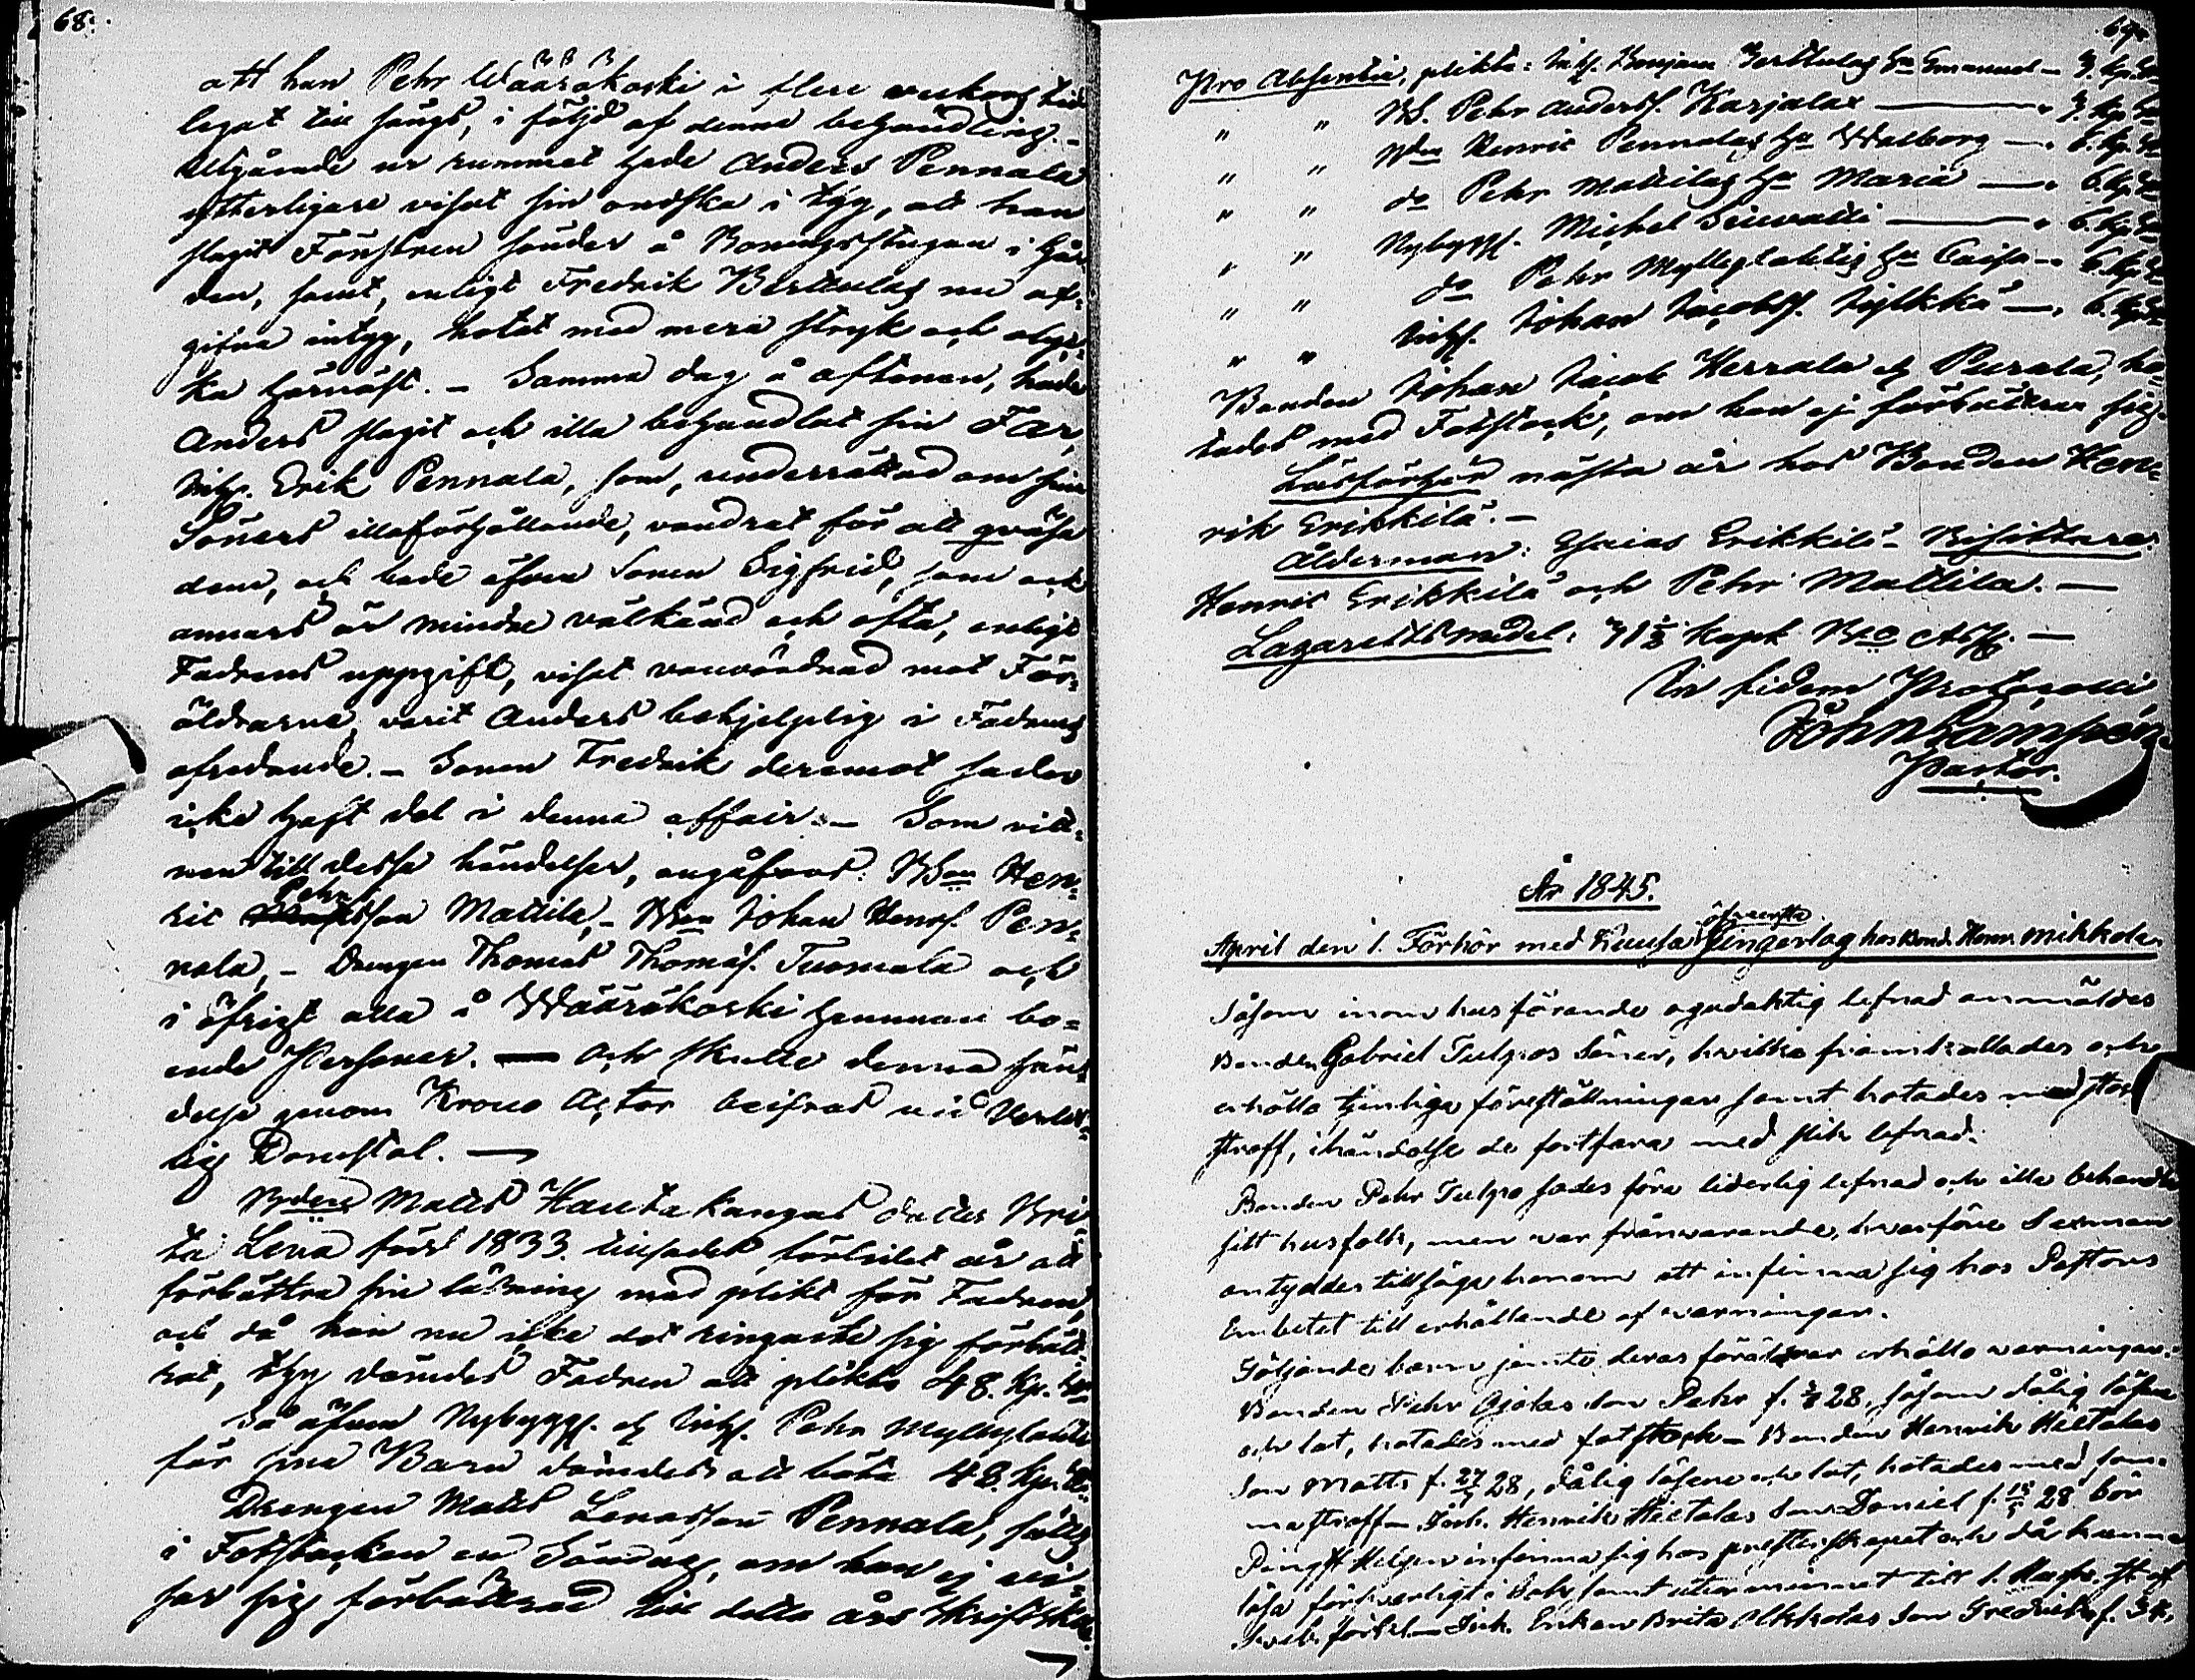 68.
att han Pehr Wääräkoski i flere veckors tid
legat till sängs, i följd af denna behandling. –
Utgående ur rummet hade Anders Pennala
ytterligare visat sin ondska i thy, att han
slagit Fönstren sönder å Boningsstugan i går-
den, samt, enligt Fredrik Berttulas nu af-
gifna intyg, hotat med mera stryk och olyc-
ka härnäst. – Samma dag å aftonen, hade
Anders slagit och illa behandlat sin Far,
Inhs. Erik Pennala, som, underrättad om sine
Söners illaförhållande, vandrat för att qväsa
dem, och hade äfven Sonen Sigfrid, som ock
annars är mindre välkänd och ofta, enligt
Fadrens uppgift, visat vanvördnad mot För-
äldrarne, varit Anders behjelplig i Fadrens
afredande. – Sonen Fredrik deremot sades
icke haft del i denna affair. – Som vitt-
nen till dessa händelser, angåfvos: Bon Hen-
ric Pehrsson Mattila, – Bon Johan Henrs. Pen-
nala, – Drengen Thomas Thomas. Tuomala och
i öfrigt alla å Wääräkoski hemman bo-
ende Personer. — Och skulle denna hän-
delse genom Krono Actor beifras vid Verlds-
lig Domstol. —
Bondens Matts Hautakangas dotter Bri-
ta Lena född 1833. tillsades förlidet år att
förbättra sin läsning med plikt för Fadren,
och då hon nu icke det ringaste sig förbätt-
rat, thy dömdes Fadren att plikta 48. Kp. Sr
Så äfven Nybyggs. och Inhs. Pehr Myllylahti
för sina Barn dömdes att böta 48. Kp. Sr
Drengen Matts Lenasson Pennala, sättes
i Fotstocken en Söndag, om han ej vi-
sar sig förbättrad till detta års skriftskola.
69.
Pro Absentia, plikta: Inhs. Benjam Berttulas hu Emanuel –
" " Bd. Pehr Anders. Karjalas —
" " Bdn Henric Pennalas hu Walborg — 6. kp. Sr
" " do Pehr Mattilas hu Maria — 6. kp. Sr
" " Nybyggs. Michel — 6. kp. Sr
" " do Pehr Myllylahtis hu Caisa – 6. kp. Sr
" " Inhs. Johan Jacobs. Jylkkä — 6. kp. Sr
Bonden Johan Jacob Herrala och Purala, ho-
tades med Fotstock, om han ej förbättrar sig.
Läsförhör nästa år hos Bonden Hen-
rik Erikkilä. –
Ålderman: Esaias Erikkilä – Bisittare:
Henric Erikkilä och Pehr Mattila. —
Lazarettsmedel: Kopek Bco Ass. —
In fidem Protocolli
Pastor.
År 1845.
April den 1. Förhör med Kausa öfversta Lingerlag hos Bond. Henr. Mikkola
Såsom inom hus förande ogudaktig lefnad anmäldes
Bonden Gabriel Tulpos Söner, hvilka framkallades och
erhöllo tjenliga föreställningar samt hotades med stock
straff, ihändelse de fortfara med slik lefnad.
Bonden Pehr Tulpo sades föra liderlig lefnad och illa behandla
sitt husfolk, men var frånvarande, hvarföre Sexman
antyddes tillsäga honom att infinna sig hos Pastors
Embetet till erhållande af varningar.
Följande barn jemte deras föräldrar erhöllo varningar:
Bonden Pehr Ojalas Son Pehr f. 28, såsom dålig läsare
och lat, hotades med fotstock – Bonden Henrik Hietalas
Son Matts f. 27/7 28, dålig läsare och lat, hotades med sam-
ma straff – Inh. Henrik Hietalas Son Daniel f. 28 bör
Pingst Helgen infinna sig hos presterskapet och då kunna
läsa försvarligt i bok, samt utur minnet till
Sveb. förkl. – Inh. Enkan Brita Ukkolas Son Fredrik f.